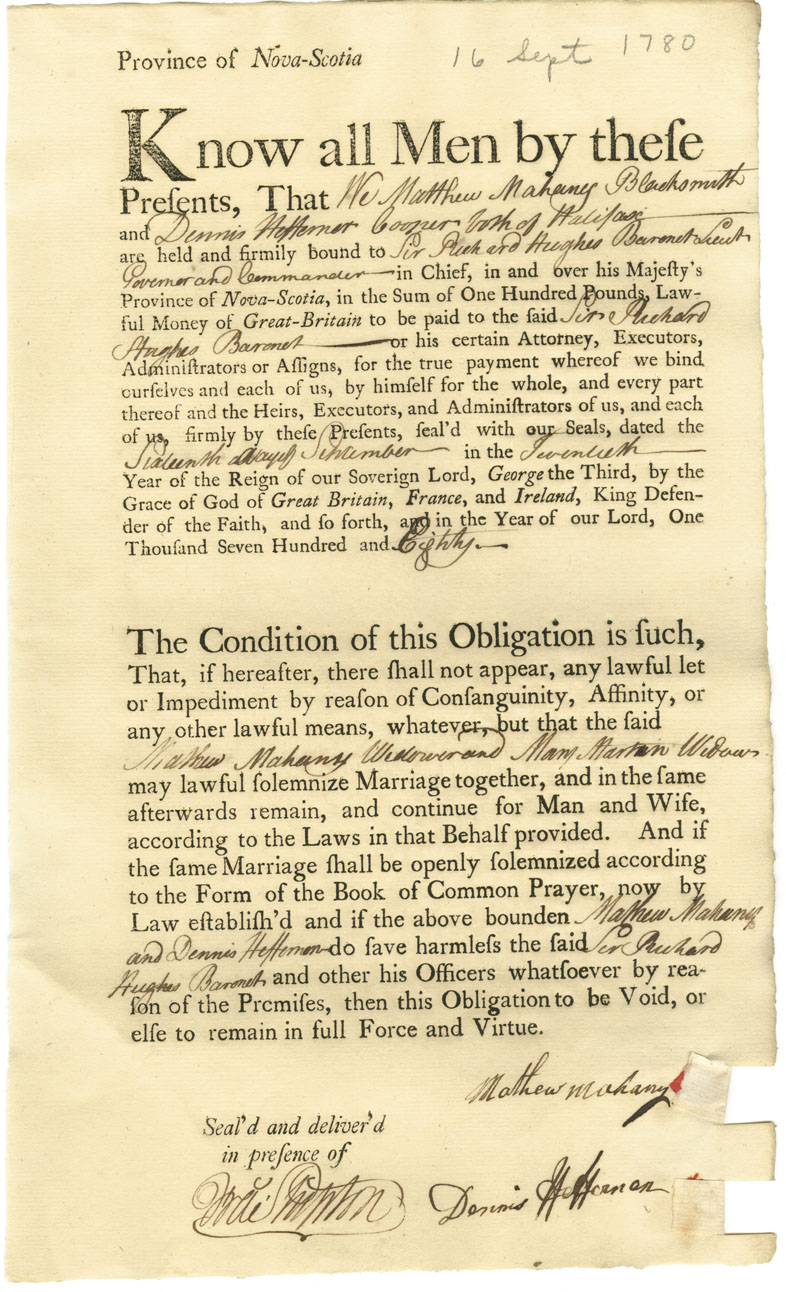 Province of Nova-Scotia 16 Sept 1780
Know all Men by theſe
Preſents, That We Matthew Mahany Blacksmith
and Dennis Heffernon Cooper both of Halifax
are held and firmily bound to Sir Richard Hughes Baronet Lieut
Governor and Commander in Chief, in and over his Majeſty's
Province of Nova-Scotia, in the Sum of One Hundred Pounds, Law-
ful Money of Great-Britain to be paid to the ſaid Sir Richard
Hughes Baronet or his certain Attorney, Executors,
Adminiſtrators or Aſſigns, for the true payment whereof we bind
ourſelves and each of us, by himſelf for the whole, and every part
thereof and the Heirs, Executors, and Adminiſtrators of us, and each
of us, firmly by theſe Preſents, ſeal'd with our Seals, dated the
Sixteenth day of September in the Twentieth
Year of the Reign of our Soverign Lord, George the Third, by the
Grace of God of Great Britain, France, and Ireland, King Defen-
der of the Faith, and ſo forth, and in the Year of our Lord, One
Thouſand Seven Hundred and Eighty
The Condition of this Obligation is ſuch,
That, if hereafter, there ſhall not appear, any lawful let
or Impediment by reaſon of Conſanguinity, Affinity, or
any other lawful means, whatever, but that the ſaid
Mathew Mahany Widower and Mary Martin Widow
may lawful ſolemnize Marriage together, and in the ſame
afterwards remain, and continue for Man and Wife,
according to the Laws in that Behalf provided. And if
the ſame Marriage ſhall be openly ſolemnized according
to the Form of the Book of Common Prayer, now by
Law eſtabliſh'd and if the above bounden Mathew Mahany
and Dennis Heffernon do ſave harmleſs the ſaid Sir Richard
Hughes Baronet and other his Officers whatſoever by rea-
ſon of the Premiſes, then this Obligation to be Void, or
elſe to remain in full Force and Virtue.
Mathew Mahany
Seal'd and deliver'd
in preſence of
Dennis Heffernan